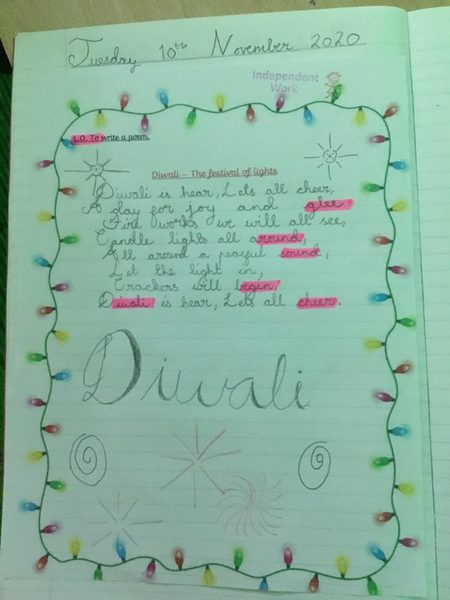 Tuesday 10th November 2020
Independent
Work
L.O. To write a poem.
Diwali – The festival of lights
Diwali is hear, Lets all cheer,
A day for joy and glee
Fire works we will all see,
Candle lights all around,
All around a peacful sound,
Let the light in,
Crackers will begin,
Diwali is hear, Lets all cheer.
Diwali